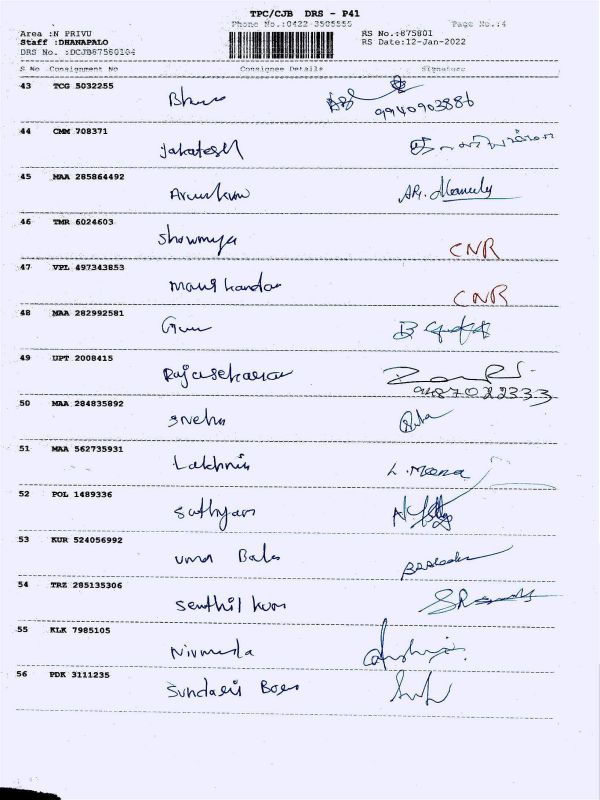 TPC/CJB DRS - P41
Phone No.:0422-3505555 Page No.:4
Area :N PRIVU RS No.:875801
Staff :DHANAPALO RS Date:12-Jan-2022
DRS No. :DCJB87580104
S No Consignment No Consignee Details Signature
43 TCG 5032255
9940903886
44 CMM 708371
45 MAA 285864492
Arunkum
46 TMR 6024603
Showmya CNR
47 VPL 497343853
Manikandan CNR
48 MAA 282992581
49 UPT 2008415
Rajasekaran
9487022333
50 MAA 284835892
Sneha
51 MAA 562735931
Lakshmi L. Meena
52 POL 1489336
Sathyan
53 KUR 524056992
Uma Bala
54 TRZ 285135306
Senthil kum
55 KLK 7985105
Nirmala
56 PDK 3111235
Sundari Boss